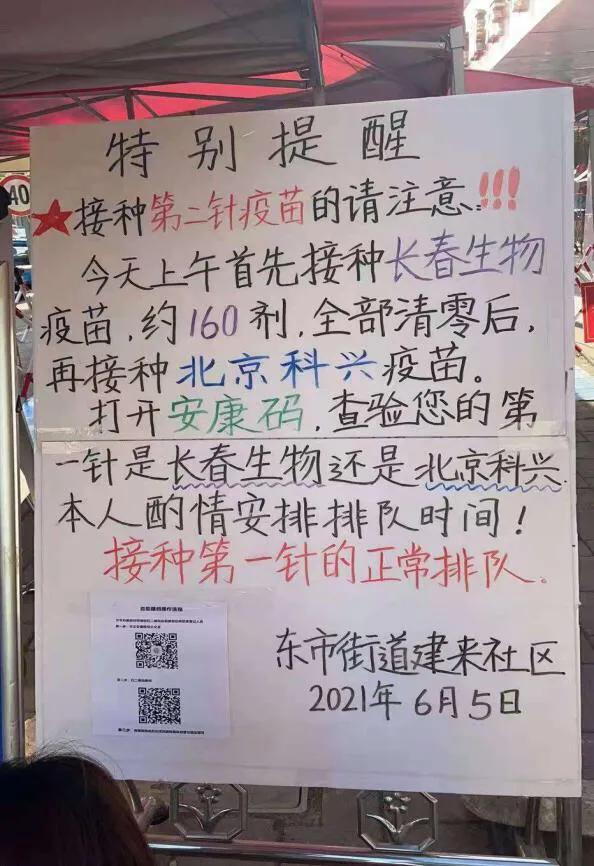 特别提醒
★接种第二针疫苗的请注意:!!!
今天上午首先接种长春生物
疫苗,约160剂,全部清零后,
再接种北京科兴疫苗。
打开安康码,查验您的第
一针是长春生物还是北京科兴.
本人酌情安排排队时间!
接种第一针的正常排队.
东市街道建来社区
2021年6月5日
40